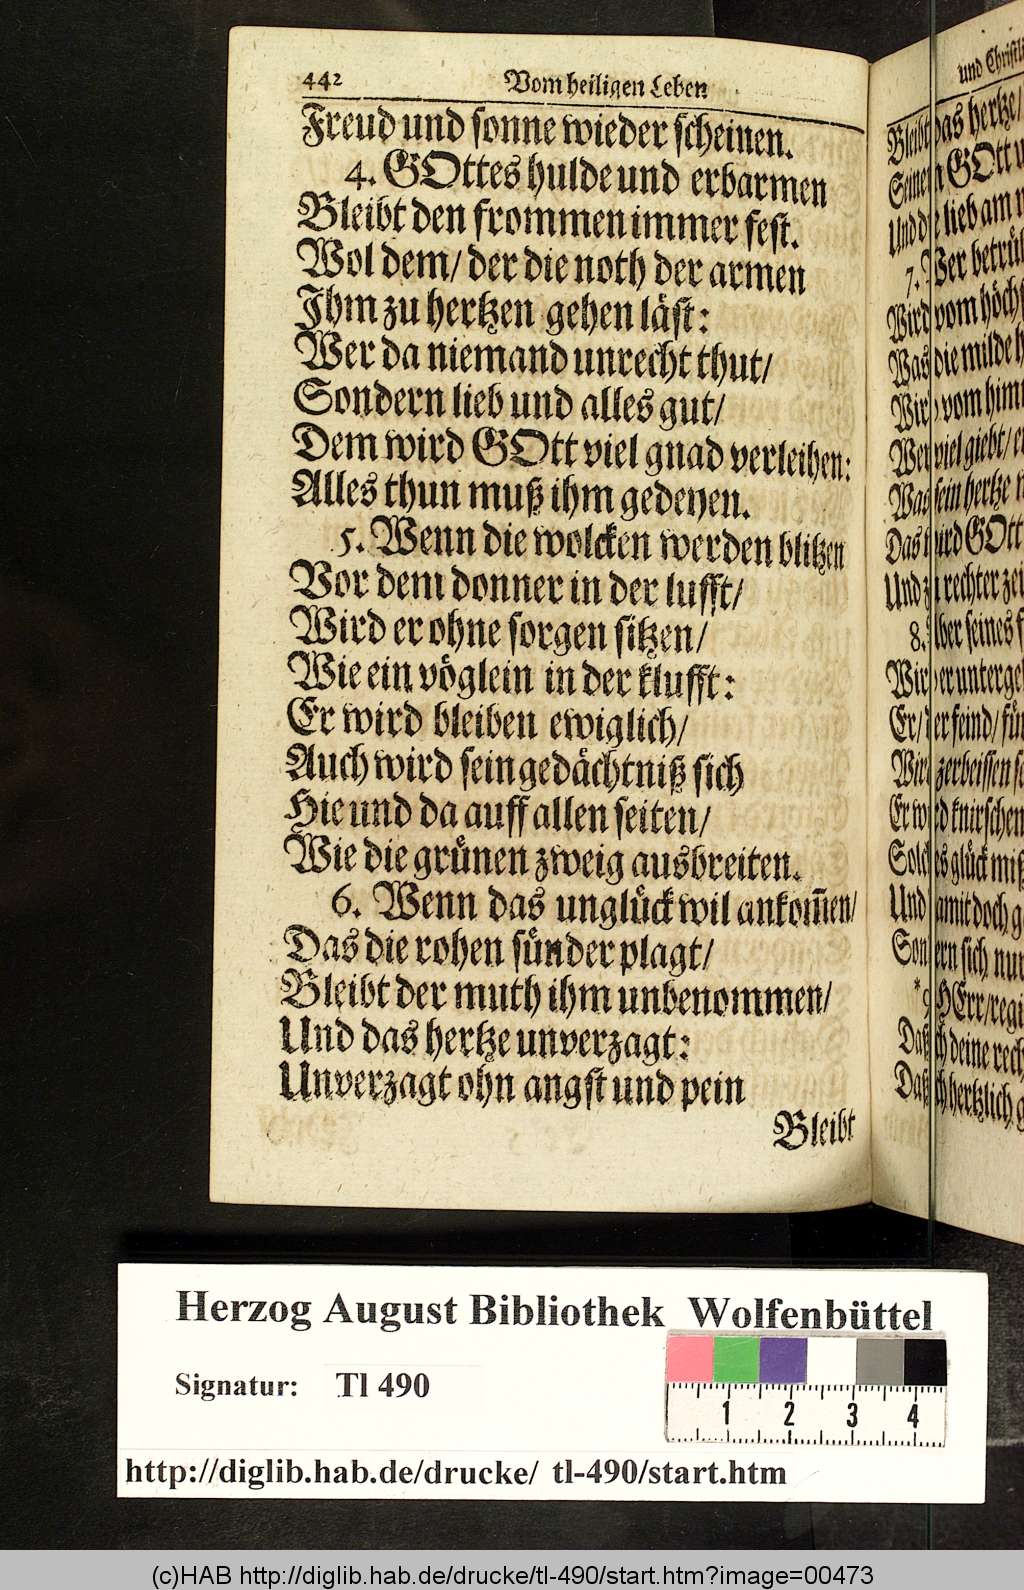 442 Vom heiligen Leben
Freud und sonne wieder scheinen.
4. GOttes hulde und erbarmen
Bleibt den frommen immer fest.
Wol dem/ der die noth der armen
Ihm zu hertzen gehen läst:
Wer da niemand unrecht thut/
Sondern lieb und alles gut/
Dem wird GOtt viel gnad verleihen:
Alles thun muß ihm gedeyen.
5. Wenn die wolcken werden blitzen
Vor dem donner in der lufft/
Wird er ohne sorgen sitzen/
Wie ein vöglein in der klufft:
Er wird bleiben ewiglich/
Auch wird sein gedächtniß sich
Hie und da auff allen seiten/
Wie die grünen zweig ausbreiten.
6. Wenn das unglück wil ankom̅en/
Das die rohen sünder plagt/
Bleibt der muth ihm unbenommen/
Und das hertze unverzagt:
Unverzagt ohn angst und pein
Bleibt
und
Bleibt das hertze/
GOtt
Und die lieb am
7. Wer
Wird vom
Was die milde
Wird vom
Wer viel giebt/
Was sein hertze
Das wird GOtt
Und zu rechter
8. Aber seines
Wird er
Er/ der feind/
Wird zerbeissen
Er wird knirschen
Solches glück
Und damit doch
Sondern sich nur
* 9. HErr/
Daß ich deine
Daß ich hertzlich
Herzog August Bibliothek Wolfenbüttel
Signatur: Tl 490
1 2 3 4
http://diglib.hab.de/drucke/ tl-490/start.htm
(c)HAB http://diglib.hab.de/drucke/tl-490/start.htm?image=00473